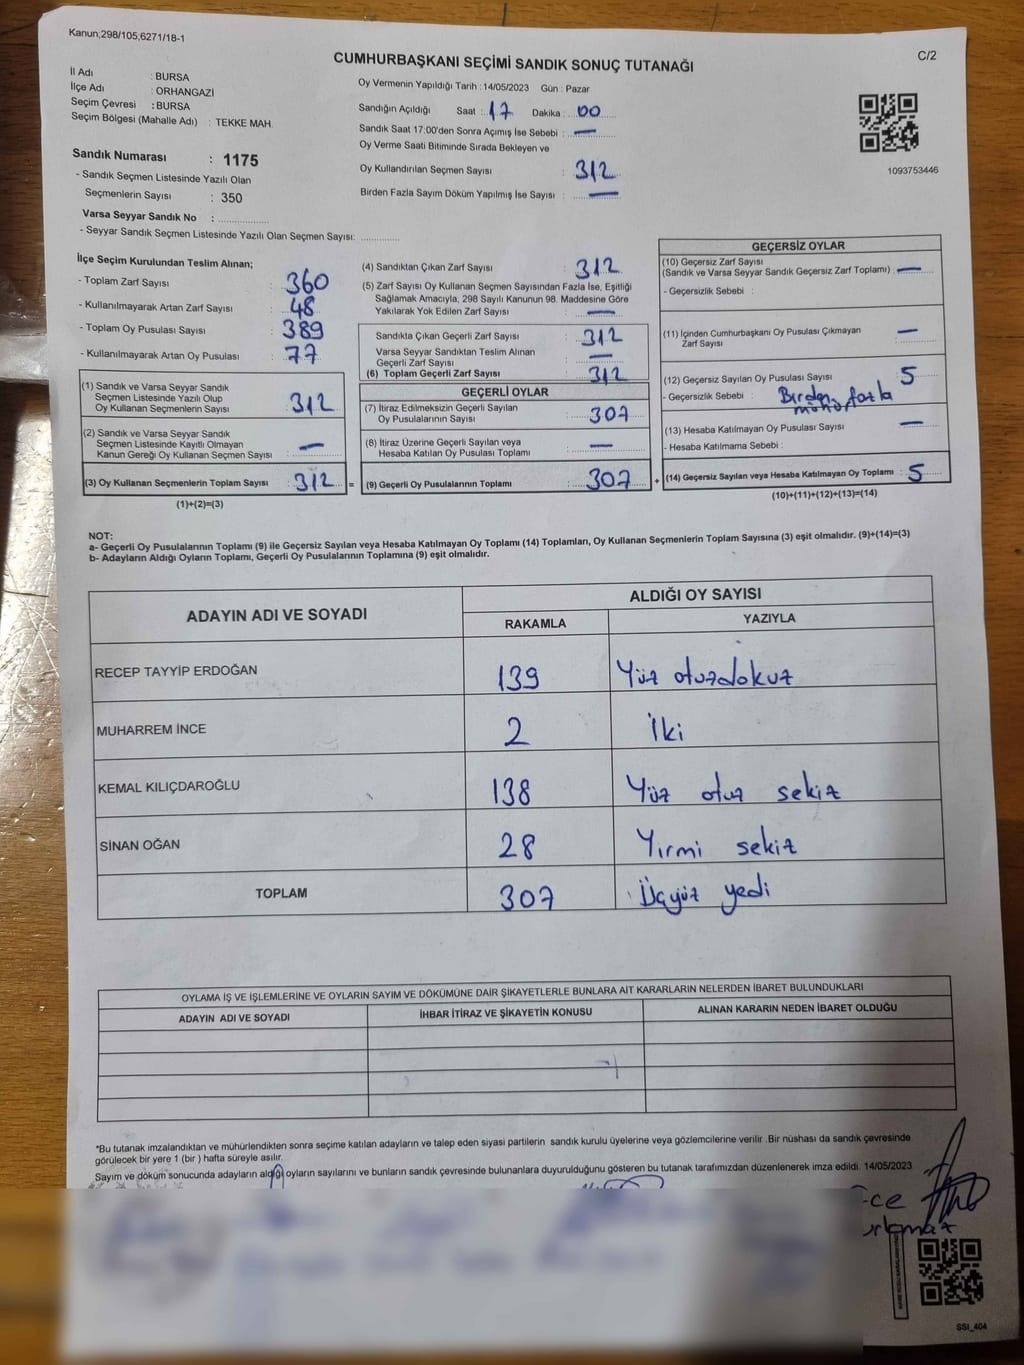 Kanun;298/105,6271/18-1
CUMHURBAŞKANI SEÇİMİ SANDIK SONUÇ TUTANAĞI
C/2
İl Adı : BURSA
İlçe Adı : ORHANGAZİ
Seçim Çevresi : BURSA
Seçim Bölgesi (Mahalle Adı) : TEKKE MAH.
Sandık Numarası : 1175
- Sandık Seçmen Listesinde Yazılı Olan
Seçmenlerin Sayısı : 350
Varsa Seyyar Sandık No :
- Seyyar Sandık Seçmen Listesinde Yazılı Olan Seçmen Sayısı:
Oy Vermenin Yapıldığı Tarih : 14/05/2023 Gün : Pazar
Sandığın Açıldığı Saat : 17 Dakika : 00
Sandık Saat 17:00'den Sonra Açımış İse Sebebi : —
Oy Verme Saati Bitiminde Sırada Bekleyen ve
Oy Kullandırılan Seçmen Sayısı : 312
Birden Fazla Sayım Döküm Yapılmış İse Sayısı : —
1093753446
İlçe Seçim Kurulundan Teslim Alınan;
- Toplam Zarf Sayısı : 360
- Kullanılmayarak Artan Zarf Sayısı : 48
- Toplam Oy Pusulası Sayısı : 389
- Kullanılmayarak Artan Oy Pusulası : 77
(1) Sandık ve Varsa Seyyar Sandık
Seçmen Listesinde Yazılı Olup
Oy Kullanan Seçmenlerin Sayısı : 312
(2) Sandık ve Varsa Seyyar Sandık
Seçmen Listesinde Kayıtlı Olmayan
Kanun Gereği Oy Kullanan Seçmen Sayısı : —
(3) Oy Kullanan Seçmenlerin Toplam Sayısı : 312 =
(1)+(2)=(3)
(4) Sandıktan Çıkan Zarf Sayısı : 312
(5) Zarf Sayısı Oy Kullanan Seçmen Sayısından Fazla İse, Eşitliği
Sağlamak Amacıyla, 298 Sayılı Kanunun 98. Maddesine Göre
Yakılarak Yok Edilen Zarf Sayısı : —
Sandıkta Çıkan Geçerli Zarf Sayısı : 312
Varsa Seyyar Sandıktan Teslim Alınan
Geçerli Zarf Sayısı : —
(6) Toplam Geçerli Zarf Sayısı : 312
GEÇERLİ OYLAR
(7) İtiraz Edilmeksizin Geçerli Sayılan
Oy Pusulalarının Sayısı : 307
(8) İtiraz Üzerine Geçerli Sayılan veya
Hesaba Katılan Oy Pusulası Toplamı : —
(9) Geçerli Oy Pusulalarının Toplamı : 307 +
GEÇERSİZ OYLAR
(10) Geçersiz Zarf Sayısı
(Sandık ve Varsa Seyyar Sandık Geçersiz Zarf Toplamı) : —
- Geçersizlik Sebebi :
(11) İçinden Cumhurbaşkanı Oy Pusulası Çıkmayan
Zarf Sayısı : —
(12) Geçersiz Sayılan Oy Pusulası Sayısı : 5
- Geçersizlik Sebebi : Birden fazla
mühür
(13) Hesaba Katılmayan Oy Pusulası Sayısı : —
- Hesaba Katılmama Sebebi :
(14) Geçersiz Sayılan veya Hesaba Katılmayan Oy Toplamı : 5
(10)+(11)+(12)+(13)=(14)
NOT:
a- Geçerli Oy Pusulalarının Toplamı (9) ile Geçersiz Sayılan veya Hesaba Katılmayan Oy Toplamı (14) Toplamları, Oy Kullanan Seçmenlerin Toplam Sayısına (3) eşit olmalıdır. (9)+(14)=(3)
b- Adayların Aldığı Oyların Toplamı, Geçerli Oy Pusulalarının Toplamına (9) eşit olmalıdır.
ADAYIN ADI VE SOYADI ALDIĞI OY SAYISI
RAKAMLA YAZIYLA
RECEP TAYYİP ERDOĞAN 139 Yüz otuzdokuz
MUHARREM İNCE 2 İki
KEMAL KILIÇDAROĞLU 138 Yüz otuz sekiz
SİNAN OĞAN 28 Yirmi sekiz
TOPLAM 307 Üçyüz yedi
OYLAMA İŞ VE İŞLEMLERİNE VE OYLARIN SAYIM VE DÖKÜMÜNE DAİR ŞİKAYETLERLE BUNLARA AİT KARARLARIN NELERDEN İBARET BULUNDUKLARI
ADAYIN ADI VE SOYADI İHBAR İTİRAZ VE ŞİKAYETİN KONUSU ALINAN KARARIN NEDEN İBARET OLDUĞU
*Bu tutanak imzalandıktan ve mühürlendikten sonra seçime katılan adayların ve talep eden siyasi partilerin sandık kurulu üyelerine veya gözlemcilerine verilir .Bir nüshası da sandık çevresinde
görülecek bir yere 1 (bir ) hafta süreyle asılır.
Sayım ve döküm sonucunda adayların aldığı oyların sayılarını ve bunların sandık çevresinde bulunanlara duyurulduğunu gösteren bu tutanak tarafımızdan düzenlenerek imza edildi. 14/05/2023
SSI_404